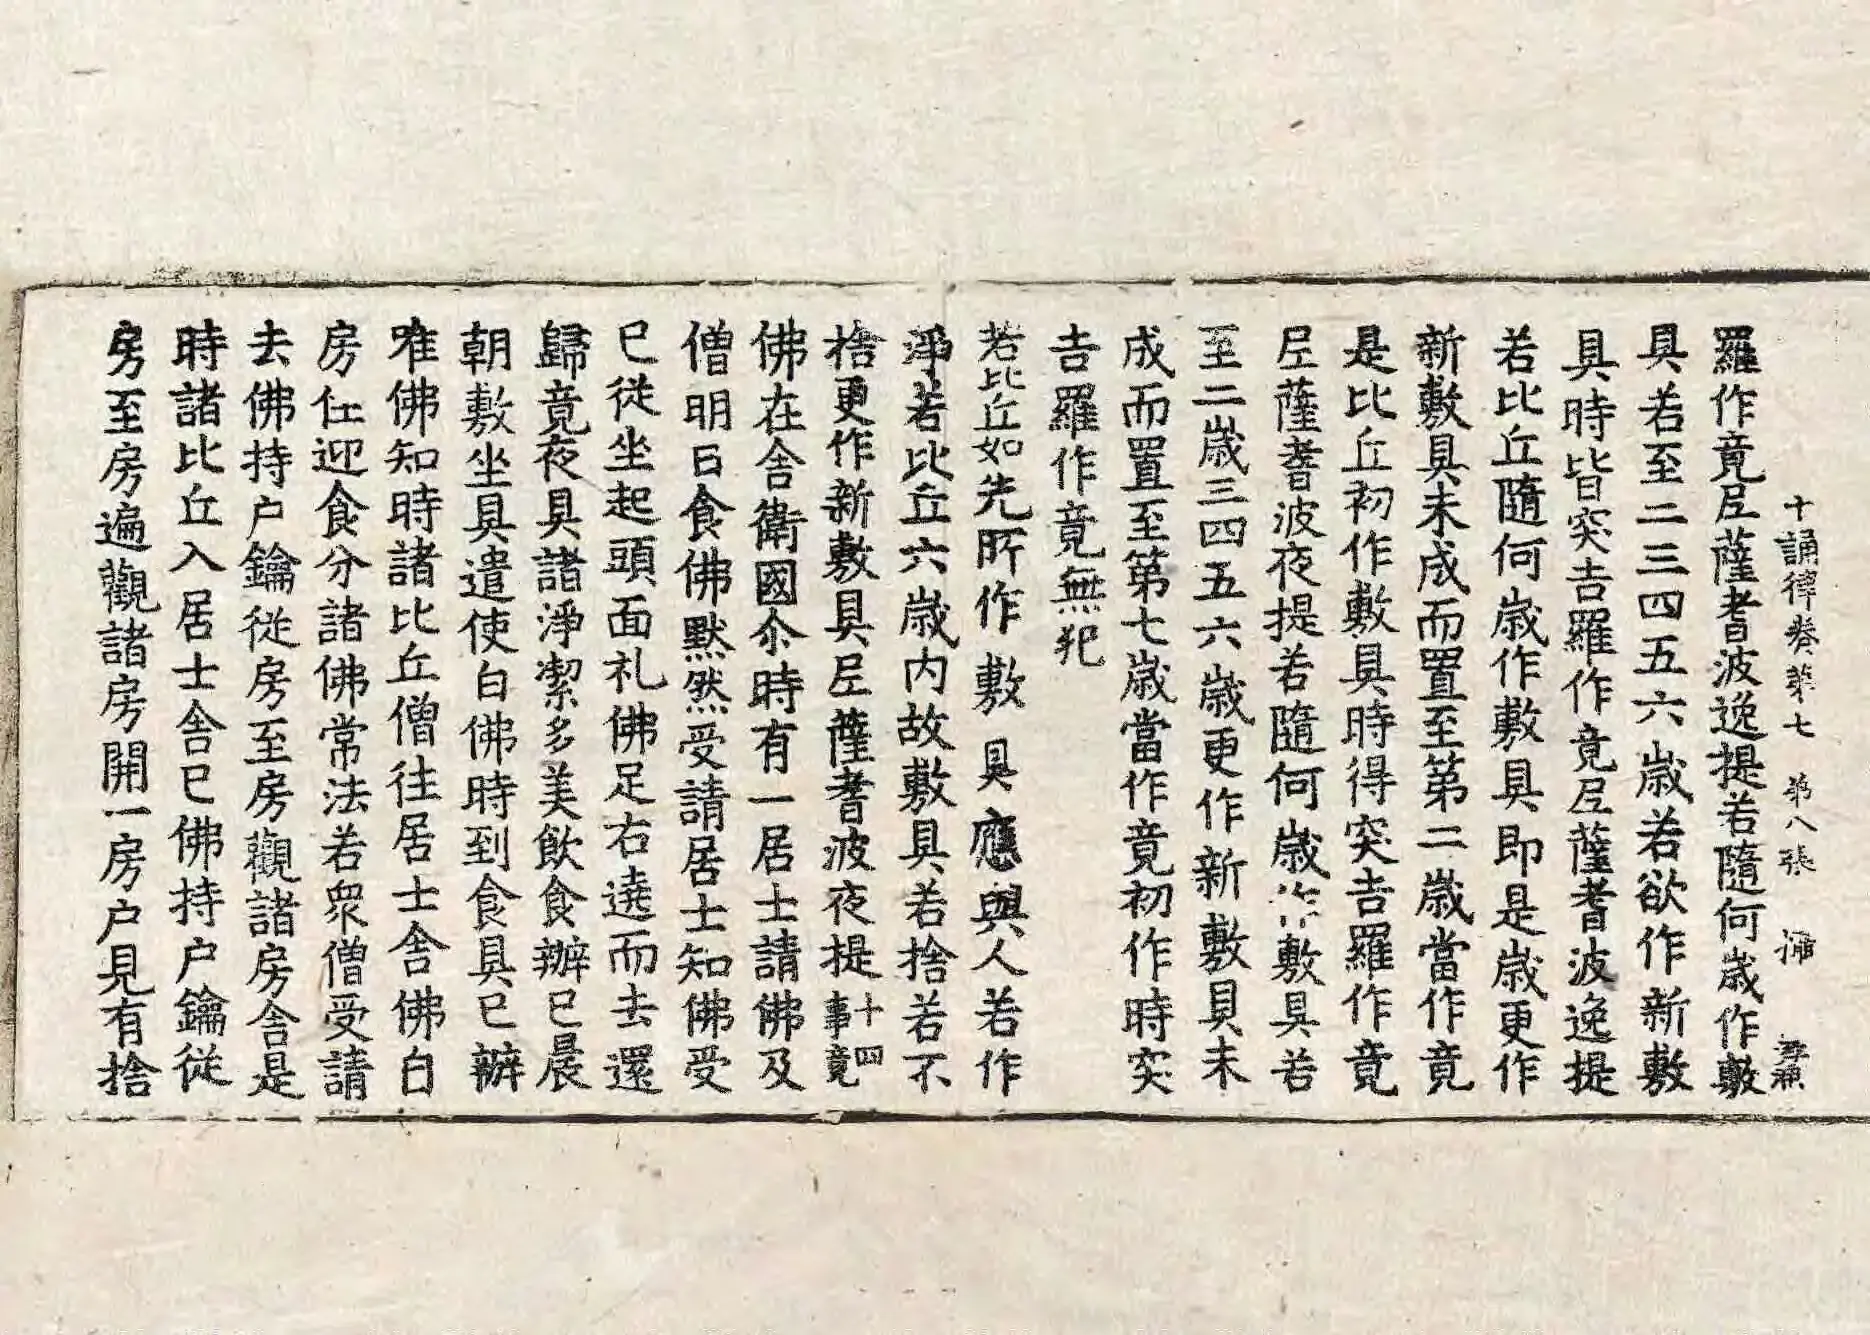 十誦律卷第七 第八張
羅作竟尼薩耆波逸提若隨何歲作敷
具若至二三四五六歲若欲作新敷
具時皆突吉羅作竟尼薩耆波逸提
若比丘隨何歲作敷具即是歲更作
新敷具未成而置至第二歲當作竟
是比丘初作敷具時得突吉羅作竟
尼薩耆波夜提若隨何歲作敷具若
至二歲三四五六歲更作新敷具未
成而置至第七歲當作竟初作時突
吉羅作竟無犯
若比丘如先所作敷具應與人若作
淨若比丘六歲内故敷具若捨若不
捨更作新敷具尼薩耆波夜提十四事竟
佛在舍衛國尒時有一居士請佛及
僧明日食佛默然受請居士知佛受
已從坐起頭面礼佛足右遶而去還
歸竟夜具諸淨潔多美飲食辦已晨
朝敷坐具遣使白佛時到食具已辦
唯佛知時諸比丘僧往居士舍佛自
房住迎食分諸佛常法若眾僧受請
去佛持户鑰從房至房觀諸房舍是
時諸比丘入居士舍已佛持户鑰從
房至房遍觀諸房開一房户見有捨